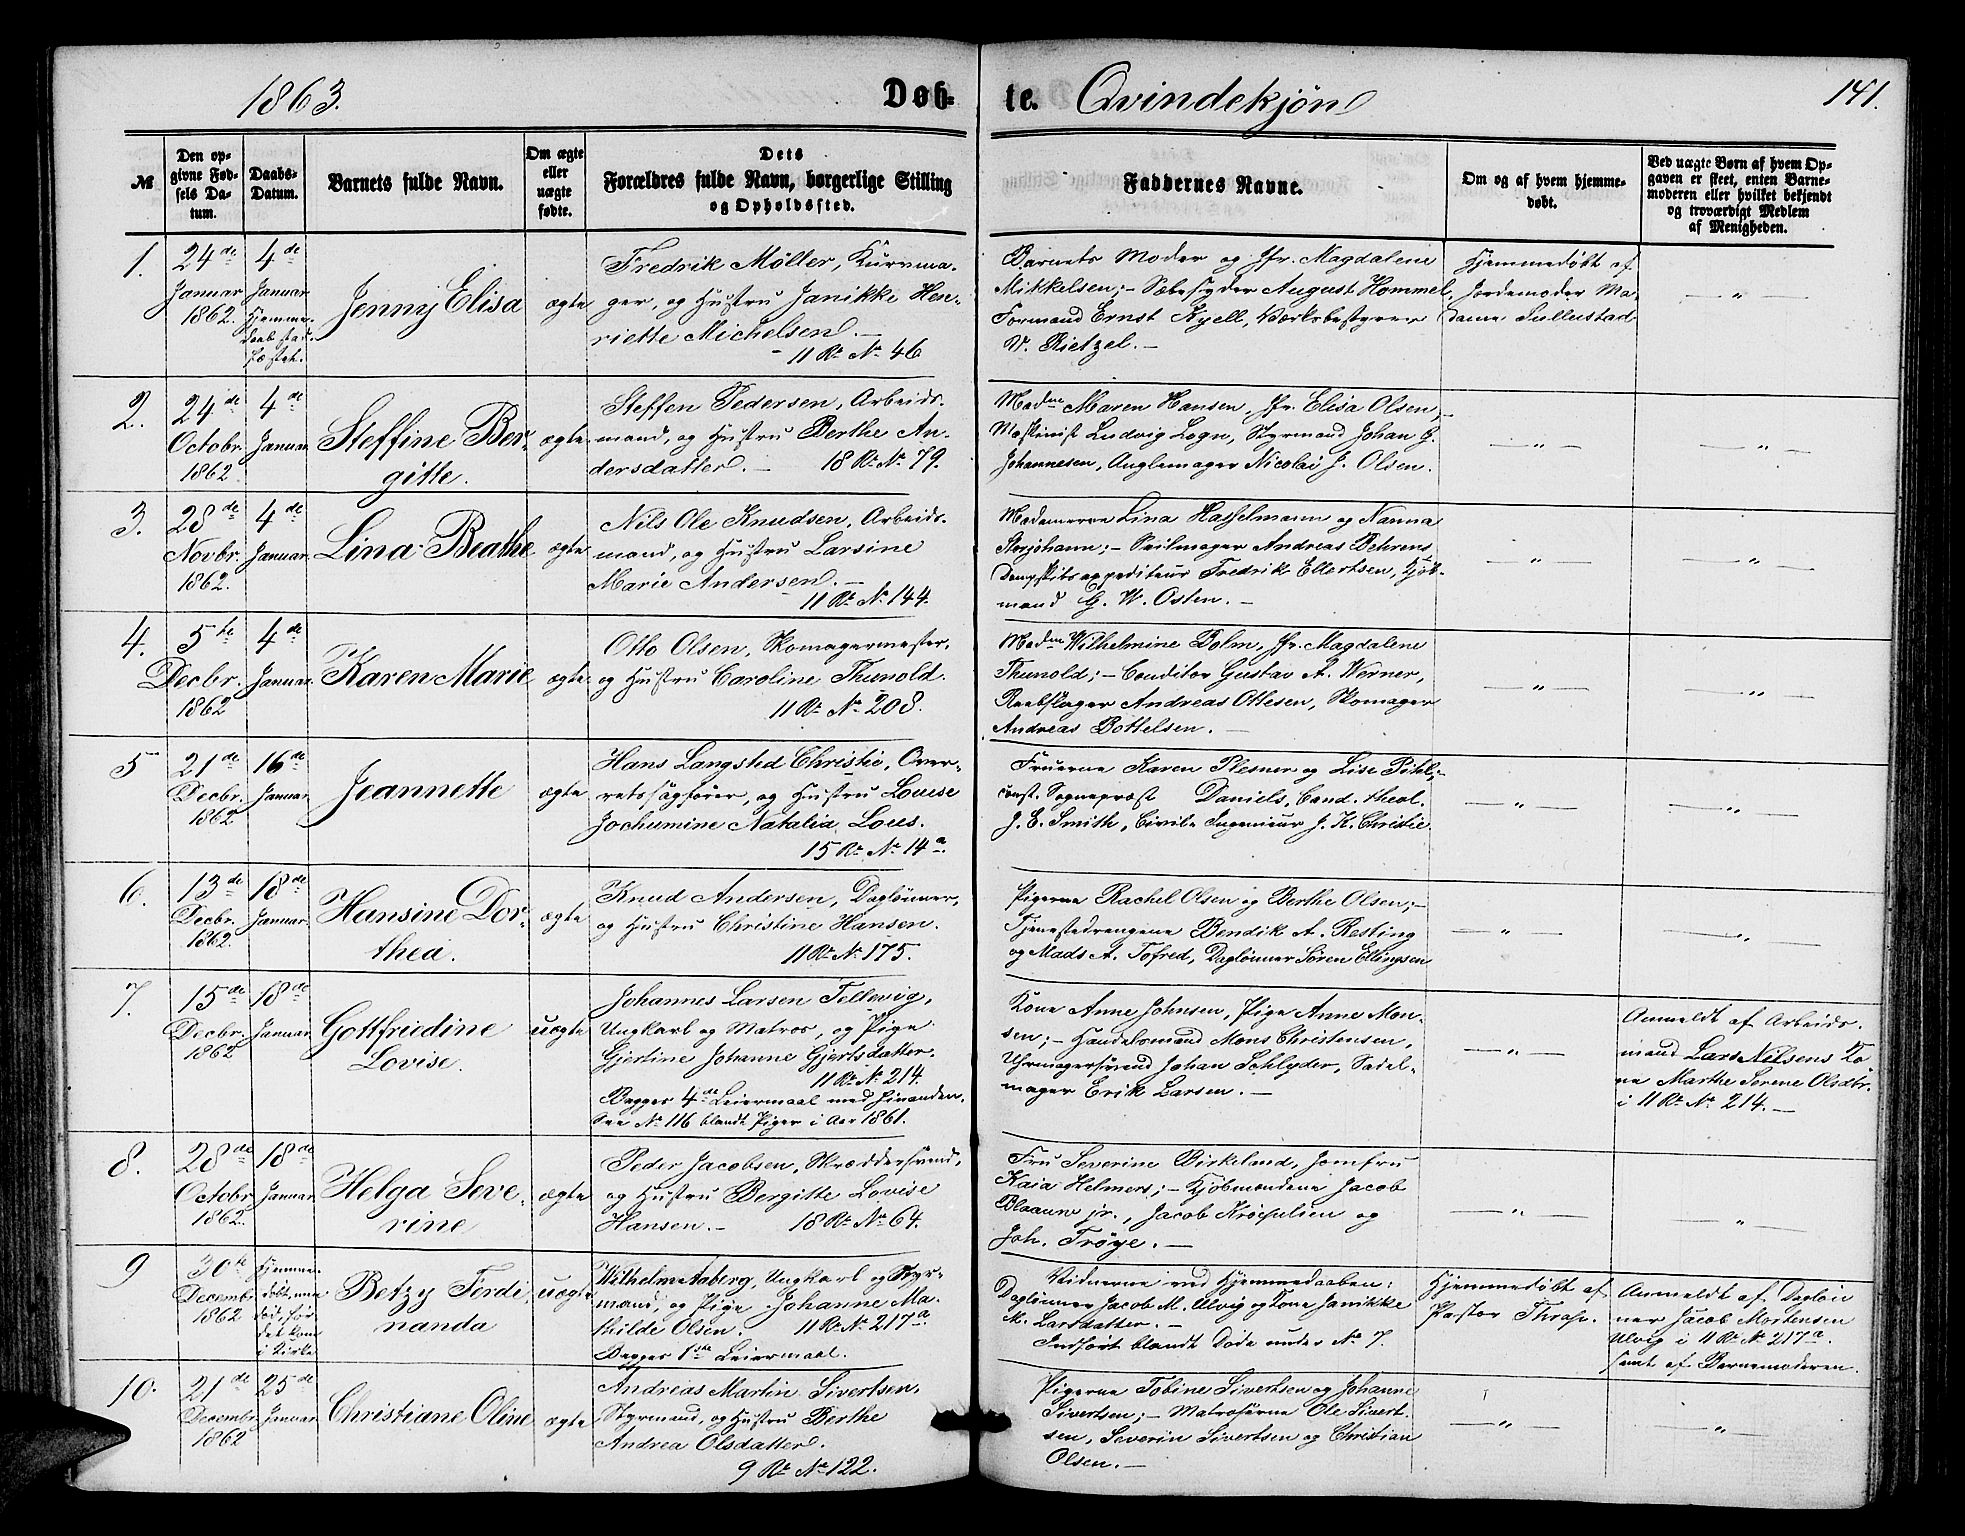 1863.
Døb-
te. Qvindekjøn
141.
№
Den op-
givne Fød-
sels Da-
tum.
Daabs-
Datum.
Barnets fulde Navn.
Om ægte
eller
uægte
fødte.
Dets
Forældres fulde Navn, borgerlige Stilling
og Opholdssted.
Faddernes Navne.
Om og af hvem hjemme-
døbt.
Ved uægte Børn af hvem Op-
gaven er skeet, enten Barne-
moderen eller hvilket bekjendt
og troværdigt Medlem
af Menigheden.
1.
24de
Januar
1862.
4de
Januar
Hjemme-
daab stad-
fæstet.
Jenny Elisa
ægte
Fredrik Møller, Kurvma-
ger, og Hustru Janikke Hen-
riette Michelsen. —
11 Rd. No. 46
Barnets Moder og Jfr. Magdalene
Mikkelsen; — Sæbesyder August Hommel,
Formand Ernst Kjell, Værksbestyrer
V. Rietzel. —
Hjemmedøbt af
Jordemoder Ma-
dame Sullustad
— " —
2.
24de
Octobr.
1862.
4de
Januar
Steffine Ber-
gitte.
ægte
Steffen Pedersen, Arbeids-
mand, og Hustru Berthe An-
dersdatter. — 18 Rd. No. 79.
Madme Maren Hansen, Jfr. Elisa Olsen; —
Maskinist Ludvig Logn, Styrmand Johan G.
Johannesen, Anglemager Nicolai J. Olsen.
— " —
— " —
3.
28de
Novbr.
1862.
4de
Januar.
Lina Beathe
ægte
Nils Ole Knudsen, Arbeids-
mand, og Hustru Larsine
Marie Andersen. —
11 Rd. No. 144.
Madamerne Lina Hasselmann og Nanna
Storjohann; — Seilmager Andreas Behrens
Dampskibsexpediteur Fredrik Ellertsen, Kjøb-
mand G. W. Osten. —
— " —
— " —
4.
5te
Decbr.
1862
4de
Januar.
Karen Marie
ægte
Otto Olsen, Skomagermester,
og Hustru Caroline Thunold.
11 Rd. No. 208.
Madme Wilhelmine Dolm, Jfr. Magdalene
Thunold; — Conditor Gustav A. Werner,
Reebslager Andreas Ottesen, Skomager
Andreas Bottelsen. —
— " —
— " —
5
21de
Decbr.
1862
16de
Januar.
Jeannette
ægte
Hans Langsted Christie, Over-
retssagfører, og Hustru Lovise
Jochumine Natalia Lous.
15 Rd. No. 14a.
Fruerne Karen Plesner og Lise Pihl; —
const. Sognepræst Daniels, Cand. theol.
J. E. Smith, Civil Ingenieur J. K. Christie.
— " —
— " —
6.
13de
Decbr.
1862.
18de
Januar.
Hansine Dor-
thea.
ægte
Knud Andersen, Daglønner,
og Hustru Christine Hansen.
11 Rd. No. 175.
Pigerne Rachel Olsen og Berthe Olsen; —
Tjenestedrengene Bendik A. Resting
og Mads A. Tofred, Daglønner Søren Ellingsen
— " —
— " —
7.
15de
Decbr.
1862
18de
Januar.
Gottfriedine
Lovise.
uægte
Johannes Larsen Tellevig,
Ungkarl og Matros, og Pige
Gjertine Johanne Gjertsdatter.
11 Rd. No. 214.
Begges 4de Leiermaal med hinanden.
See No. 116 blandt Piger i Aar 1861.
Kone Anne Johnsen, Pige Anne Mon-
sen; — Handelsmand Mons Christensen,
Uhrmagersvend Johan Schlyder, Sadel-
mager Erik Larsen. —
— " —
Anmeldt af Arbeids-
mand Lars Nilsens Ko
ne Marthe Serene Olsdtr.
i 11 Rd. No. 214. —
8.
28de
Octobr
1862.
18de
Januar.
Helga Seve-
rine
ægte
Peder Jacobsen, Skræddersvend,
og Hustru Bergitte Lovise
Hansen. — 18 Rd. No. 64.
Fru Severine Birkeland, Jomfru
Kaia Helmers; — Kjøbmændene Jacob
Blaauw jr., Jacob Krøepelien og
Joh. Trøye. —
— " —
— " —
9
30te
Decembr.
1862
Hjemme-
døbt, men
død, før
det kom
i Kirke
Betzy Ferdi-
nanda
uægte
Wilhelm Aaberg, Ungkarl og Styr-
mand, og Pige Johanne Ma-
thilde Olsen. 11 Rd. No. 217a.
Begges 1ste Leiermaal.
Vidnerne ved Hjemmedaaben:
Daglønner Jacob M. Ulvig og Kone Janikke
M. Larsdatter. —
Indført blandt Døde under No. 7.
Hjemmedøbt af
Pastor Thrap.
Anmeldt af Dagløn
ner Jacob Mortensen
Ulvig i 11 Rd. No. 217a.
samt af Barnemoderen.
10.
21de
Decembr
1862
25de
Januar
Christiane Oline
ægte
Andreas Martin Sivertsen,
Styrmand, og Hustru Berthe
Andrea Olsdatter.
9 Rd. No. 122.
Pigerne Tobine Sivertsen og Johanne
Sivertsen; — Matroserne Ole Sivert-
sen, Severin Sivertsen og Christian
Olsen. —
— " —
— " —